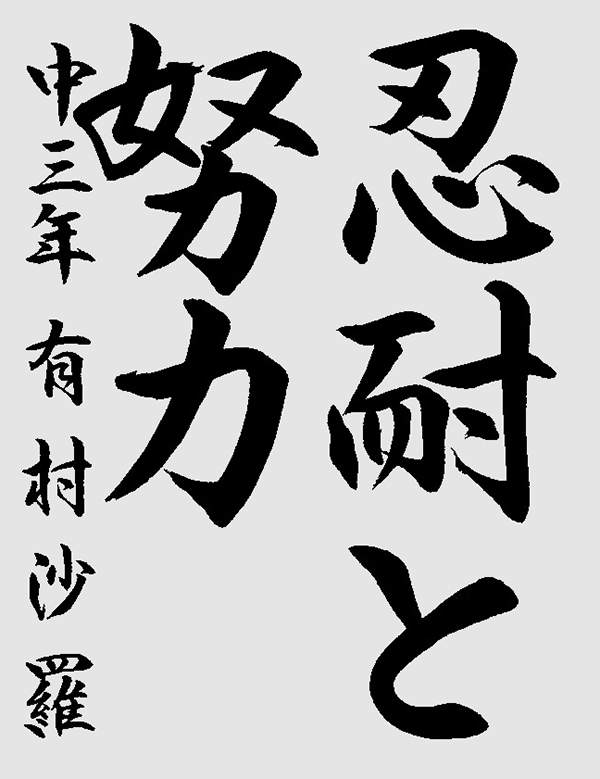 忍耐と
努力
中三年 有村沙羅